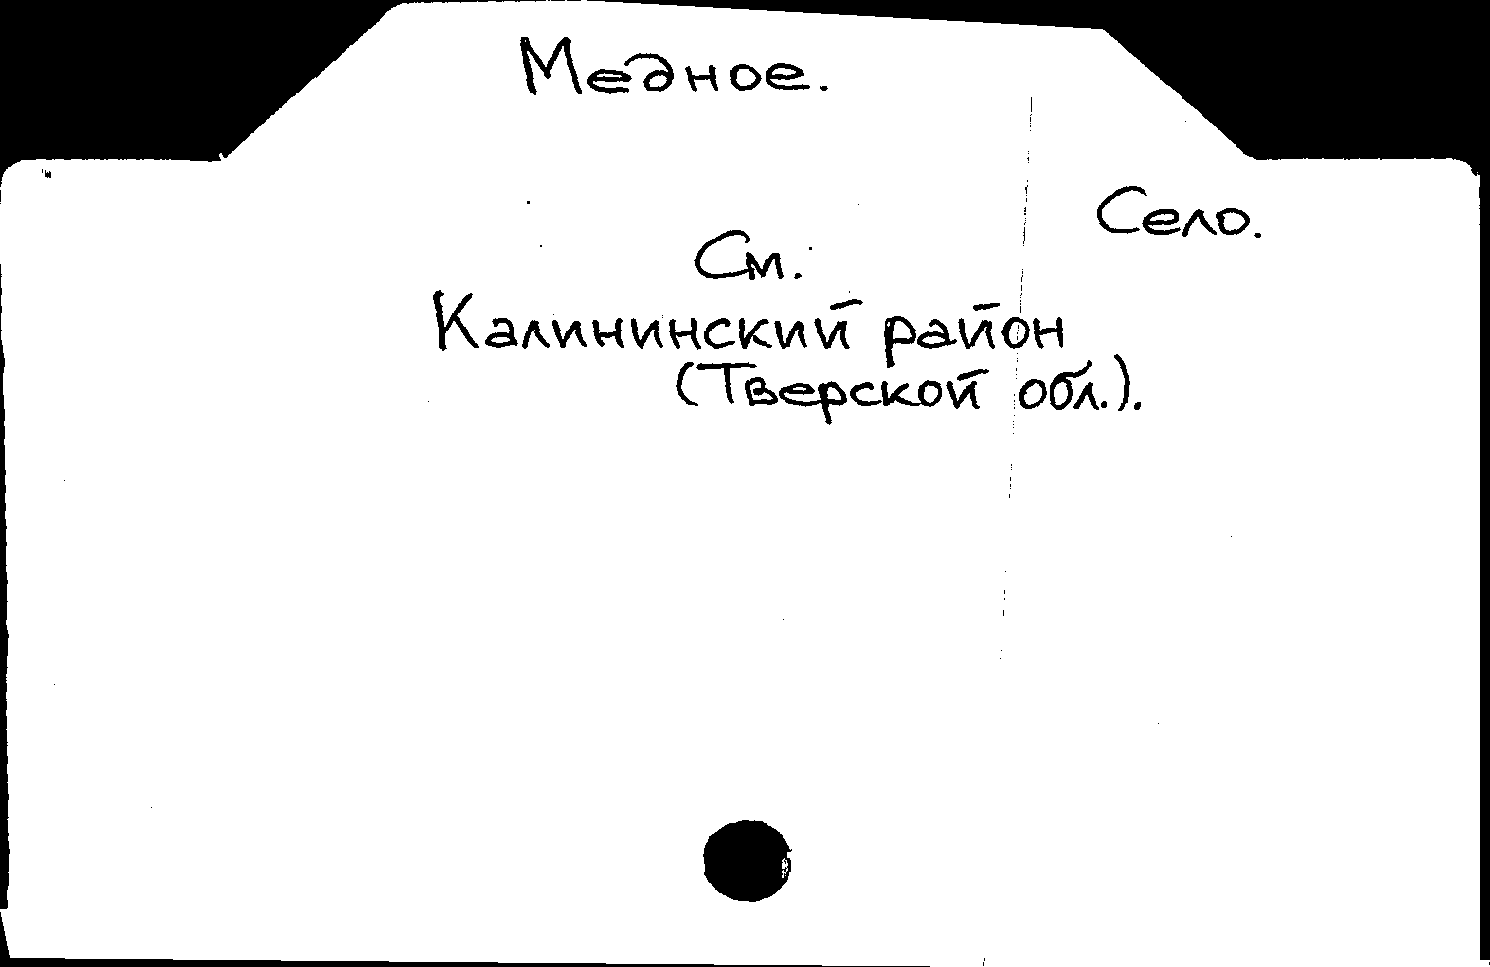 Медное.
Село.
См.
Калининский район
(Тверской обл.).